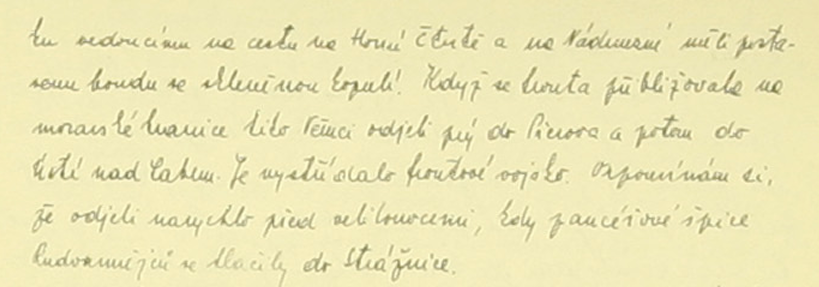 ku vedoucímu na cestu na Horní Čtvrtě a na Nádrazní měli posta-
venu boudu se skleněnou kopulí. Když se fronta přibližovala na
moravské hranice tito Němci odjeli prý do Přerova a potom do
Ústí nad Labem. Je vystřídalo frontové vojsko. Vzpomínám si,
že odjeli narychlo před velikonocemi, kdy pancéřové špice
Rudoarmějců se tlačily do Strážnice.